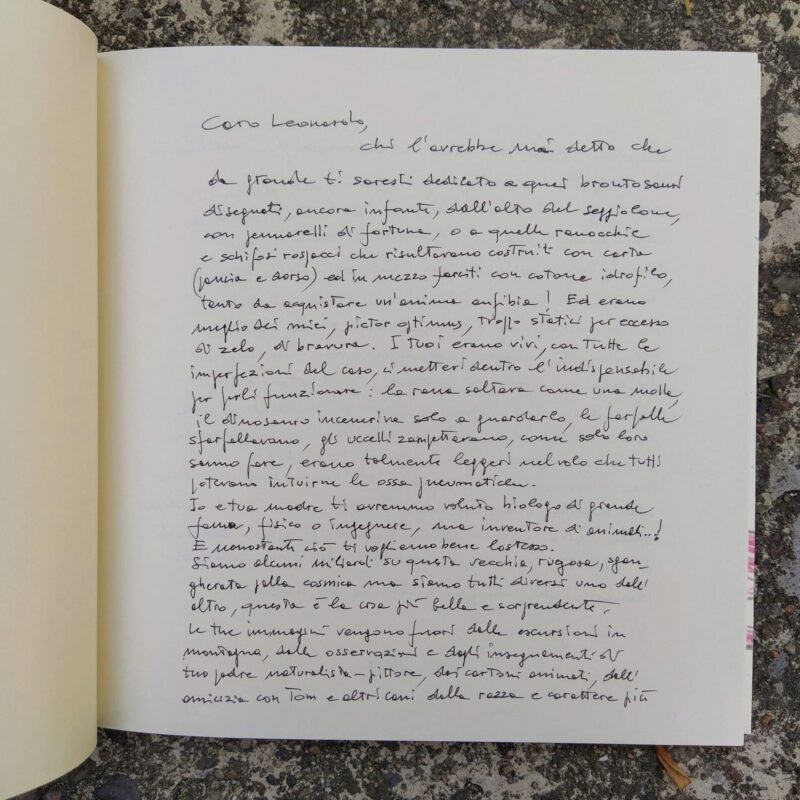 Caro Leonardo,
chi l'avrebbe mai detto che
da grande ti saresti dedicato a quei brontosauri
disegnati, ancora infante, dall'alto del seggiolone,
con pennarelli di fortuna, o a quelle ranocchie
e schifosi rospacci che risultavano costruiti con carta
(pancia e dorso) ed in mezzo farciti con cotone idrofilo,
tanto da acquistare un'anima anfibia! Ed erano
meglio dei miei, pictor optimus, troppo statici per eccesso
di zelo, di bravura. I tuoi erano vivi, con tutte le
imperfezioni del caso, ci mettevi dentro l'indispensabile
per farli funzionare: la rana saltava come una molla,
il dinosauro inceneriva solo a guardarlo, le farfalle
sfarfallavano, gli uccelli zampettavano, come solo loro
sanno fare, erano talmente leggeri nel volo che tutti
potevano intuirne le ossa pneumatiche.
Io e tua madre ti avremmo voluto biologo di grande
fama, fisico o ingegnere, ma inventore di animali..!
E nonostante ciò ti vogliamo bene lo stesso.
Siamo alcuni miliardi su questa vecchia, rugosa, sgan-
gherata palla cosmica ma siamo tutti diversi uno dall'
altro, questa è la cosa più bella e sorprendente.
Le tue immagini vengono fuori dalle escursioni in
montagna, dalle osservazioni e dagli insegnamenti di
tuo padre naturalista-pittore, dai cartoni animati, dall'
amicizia con Tom e altri cani dalla razza e carattere più